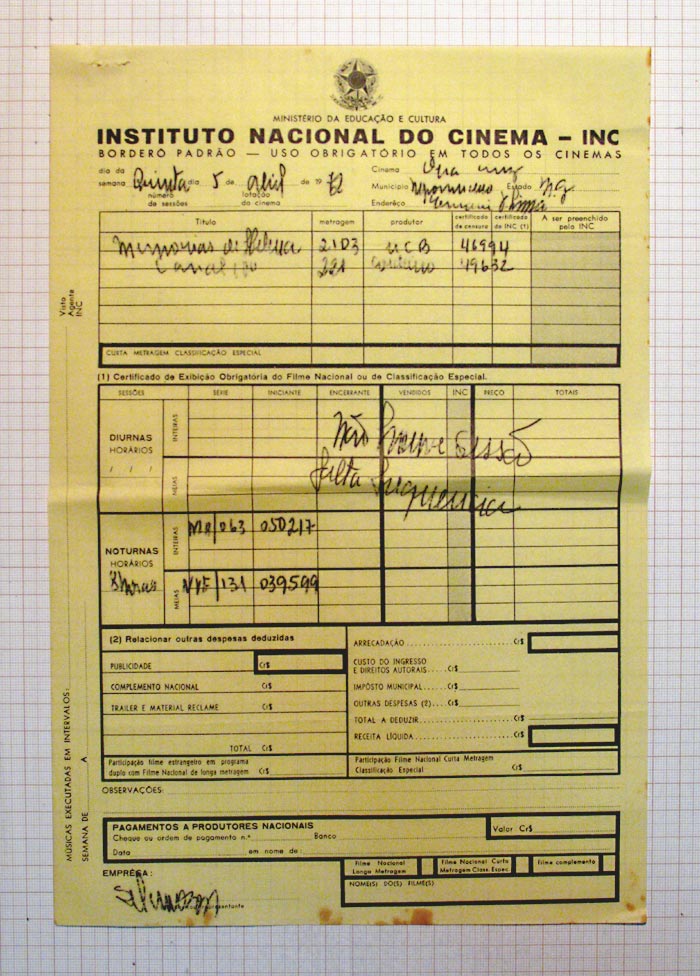 MINISTÉRIO DA EDUCAÇÃO E CULTURA
INSTITUTO NACIONAL DO CINEMA – INC
BORDERÔ PADRÃO — USO OBRIGATÓRIO EM TODOS OS CINEMAS
dia da semana Quinta dia 5 de abril de 1972
Cinema
Município Nepomuceno Estado M.G
número de sessões lotação do cinema Endereço
Título metragem produtor certificado de censura certificado de INC (1) A ser preenchido pelo INC
Memorias de Helena 2103 UCB 46994
Canal 100 221 49632
Visto Agente INC
CURTA METRAGEM CLASSIFICAÇÃO ESPECIAL
(1) Certificado de Exibição Obrigatória do Filme Nacional ou de Classificação Especial.
SESSÕES SÉRIE INICIANTE ENCERRANTE VENDIDOS INC PREÇO TOTAIS
DIURNAS HORÁRIOS / / /
INTEIRAS
MEIAS
Não houve sessão
falta frequencia
NOTURNAS HORÁRIOS
INTEIRAS 063 050217
8 horas MEIAS 131 039599
(2) Relacionar outras despesas deduzidas
PUBLICIDADE Cr$
COMPLEMENTO NACIONAL Cr$
TRAILER E MATERIAL RECLAME Cr$
TOTAL Cr$
ARRECADAÇÃO Cr$
CUSTO DO INGRESSO E DIREITOS AUTORAIS Cr$
IMPÔSTO MUNICIPAL Cr$
OUTRAS DESPESAS (2) Cr$
TOTAL A DEDUZIR Cr$
RECEITA LÍQUIDA Cr$
Participação filme estrangeiro em programa duplo com Filme Nacional de longa metragem Cr$
Participação Filme Nacional Curta Metragem Classificação Especial Cr$
OBSERVAÇÕES:
MÚSICAS EXECUTADAS EM INTERVALOS:
SEMANA DE A
PAGAMENTOS A PRODUTORES NACIONAIS
Cheque ou ordem de pagamento n.º Banco Valor Cr$
Data em nome de:
EMPRÊSA:
Filme Nacional Longa Metragem
Filme Nacional Curta Metragem Class. Espec
Filme complemento
NOME(S) DO(S) FILME(S)